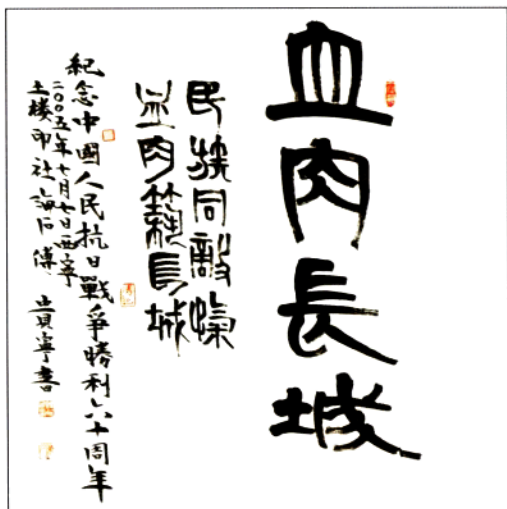 血肉長城
民族同敵愾
血肉築長城
紀念中國人民抗日戰爭勝利六十周年
二〇〇五年七月七日西寧
土樓印社海石傅貴寧書